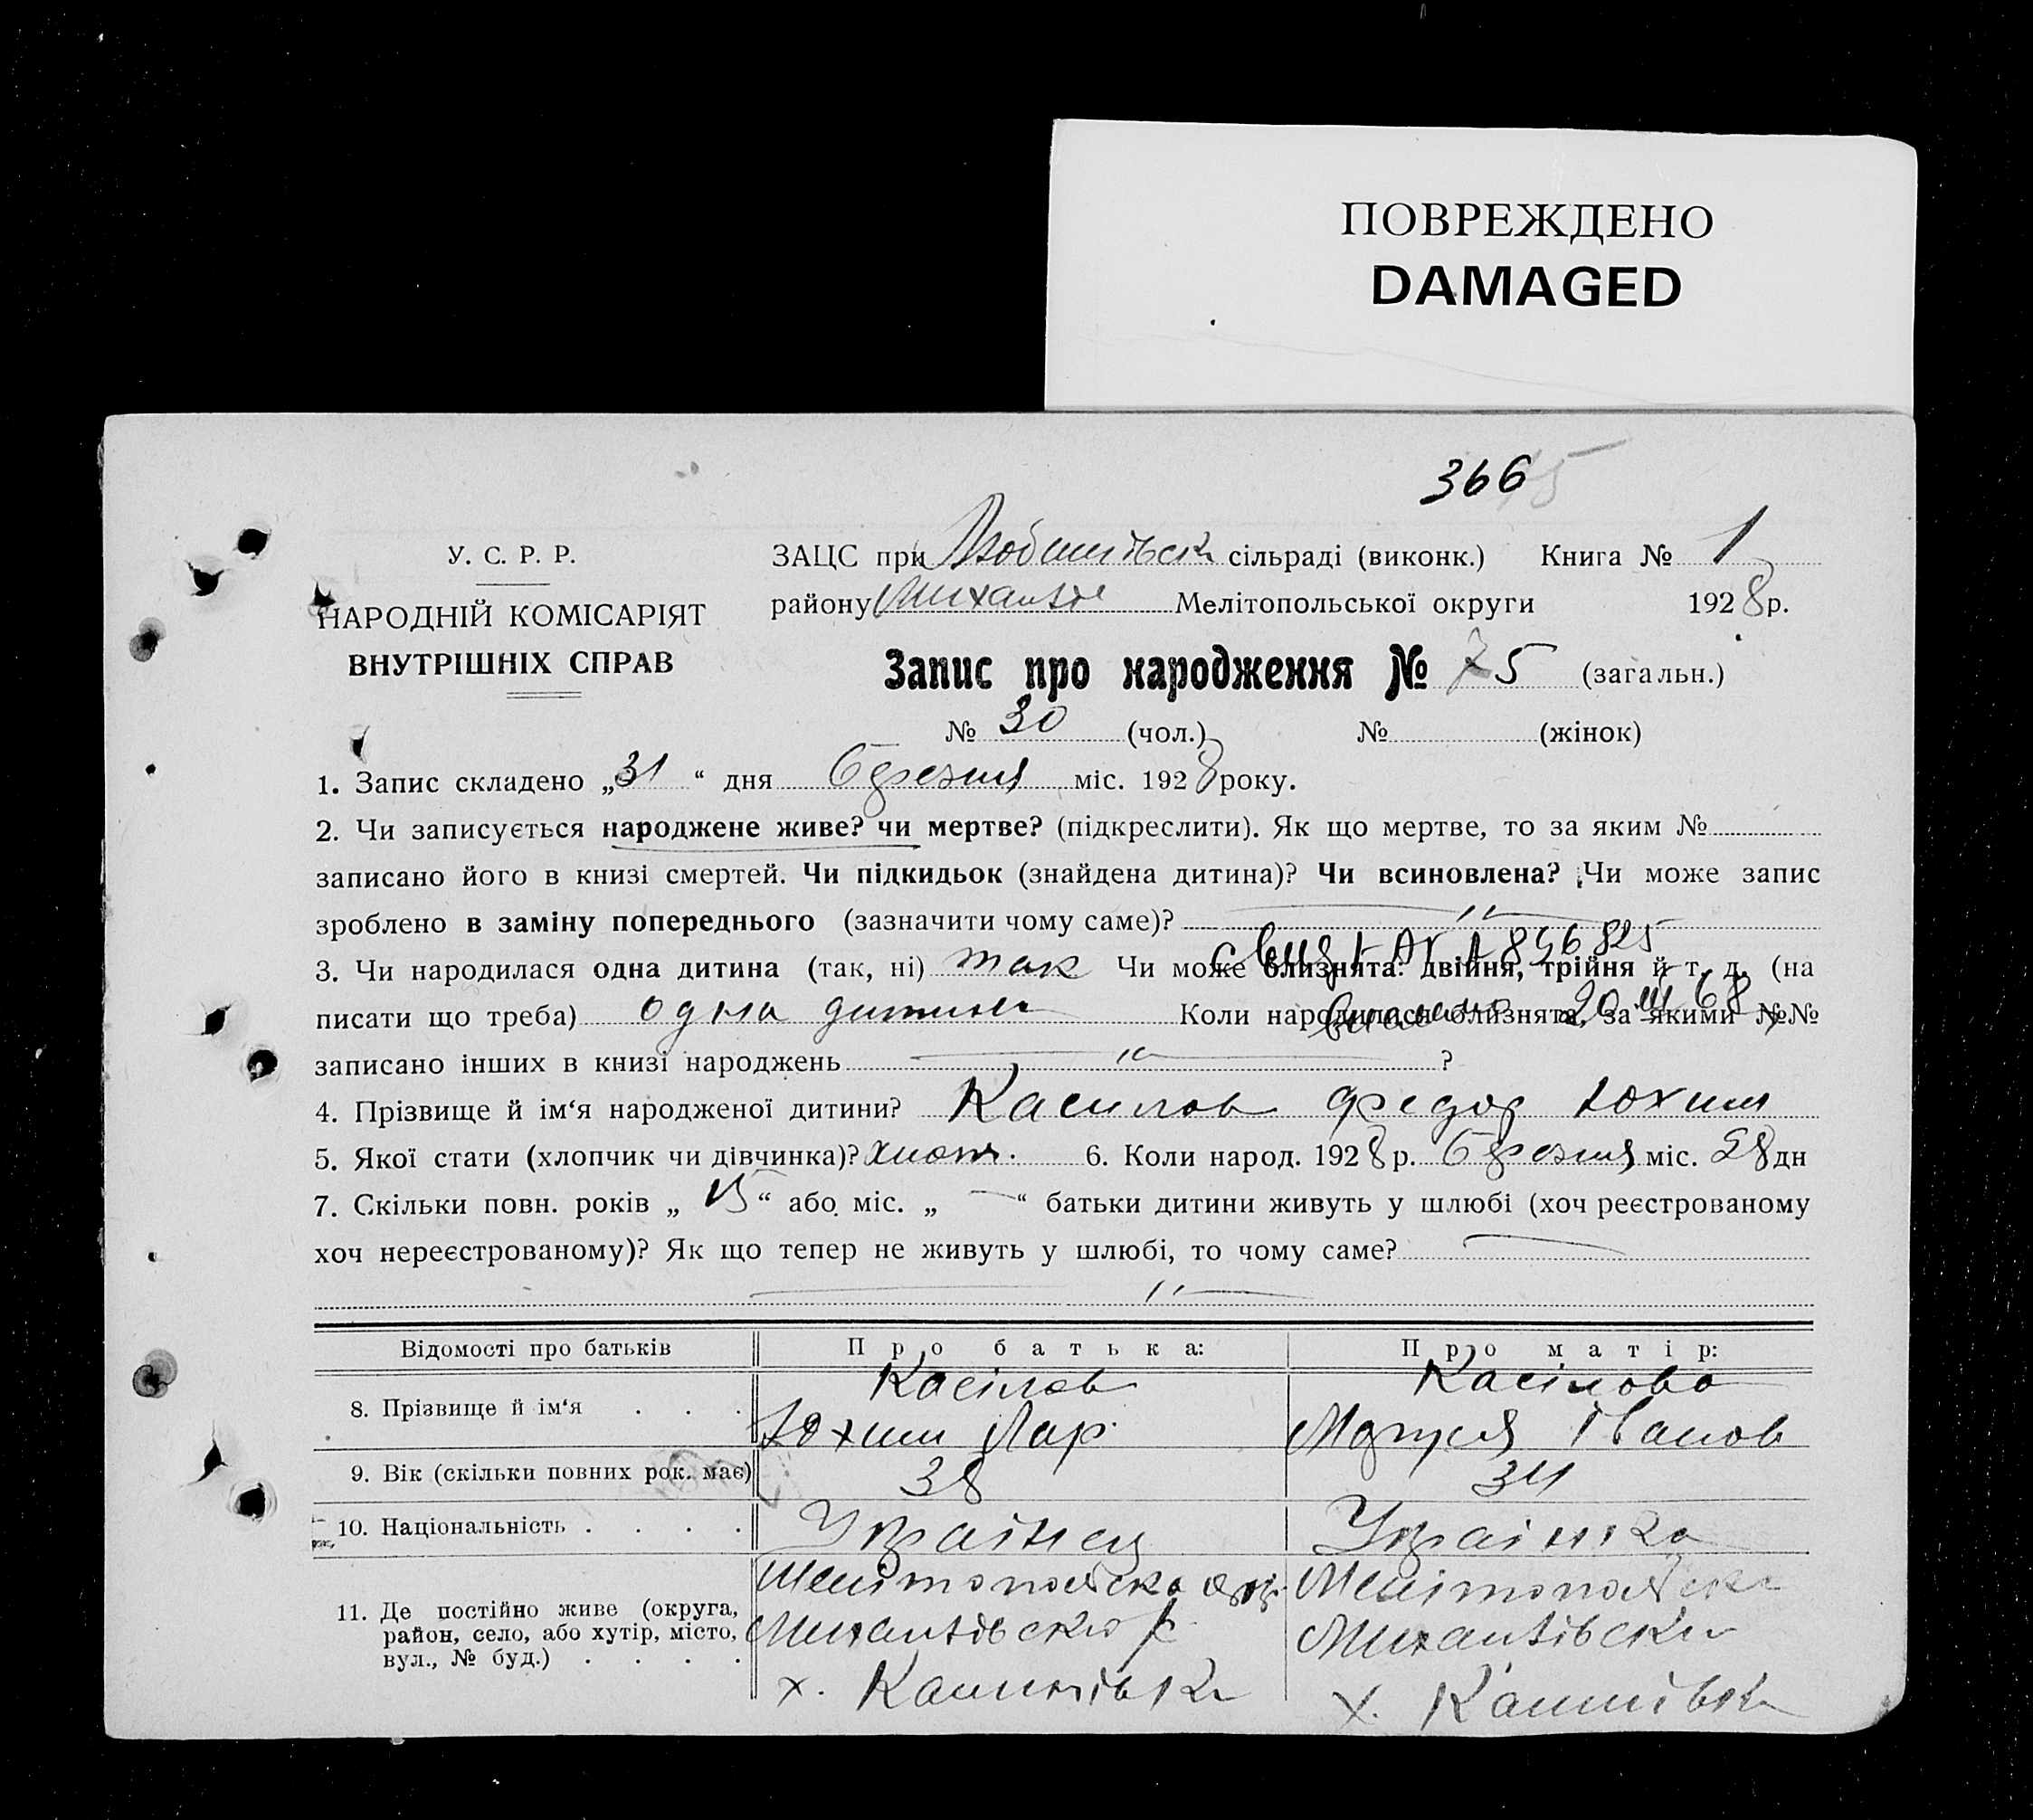 ПОВРЕЖДЕНО
DAMAGED
366
У. С. Р. Р.
НАРОДНІЙ КОМІСАРІЯТ
ВНУТРІШНІХ СПРАВ
ЗАЦС при сільраді (виконк.) Книга № 1
району Михайл Мелітопольської округи 1928 р.
Запис про народження № 75 (загальн.)
№ 30 (чол.) № (жінок)
1. Запис складено „31“ дня березня міс. 1928 року.
2. Чи записується народжене живе? чи мертве? (підкреслити). Як що мертве, то за яким №
записано його в книзі смертей. Чи підкидьок (знайдена дитина)? Чи всиновлена? Чи може запис
зроблено в заміну попереднього (зазначити чому саме)? — " —
3. Чи народилася одна дитина (так, ні) так Чи може близнята: двійня, трійня й т. д. (на
писати що треба) одна дитина Коли народилися близнята, за якими №№
записано інших в книзі народжень — " — ?
4. Прізвище й ім‘я народженої дитини? Касилов Федор Юхим
5. Якої стати (хлопчик чи дівчинка)? хлоп. 6. Коли народ. 1928 р. березня міс. 28 дн
7. Скільки повн. років „15“ або міс. „—“ батьки дитини живуть у шлюбі (хоч реєстрованому
хоч нереєстрованому)? Як що тепер не живуть у шлюбі, то чому саме? —
— " —
Відомості про батьків Про батька: Про матір:
8. Прізвище й ім‘я . . . Касілов Юхим Лар. Касілова Іванов
9. Вік (скільки повних рок. має) 38 34
10. Національність . . . . Українец Українка
11. Де постійно живе (округа, Мелітопольска окр. Мелітопольска
район, село, або хутір, місто, Михайлівский р. Михайлівски
вул., № буд.) . . . . х. Калинівка х. Калинівка